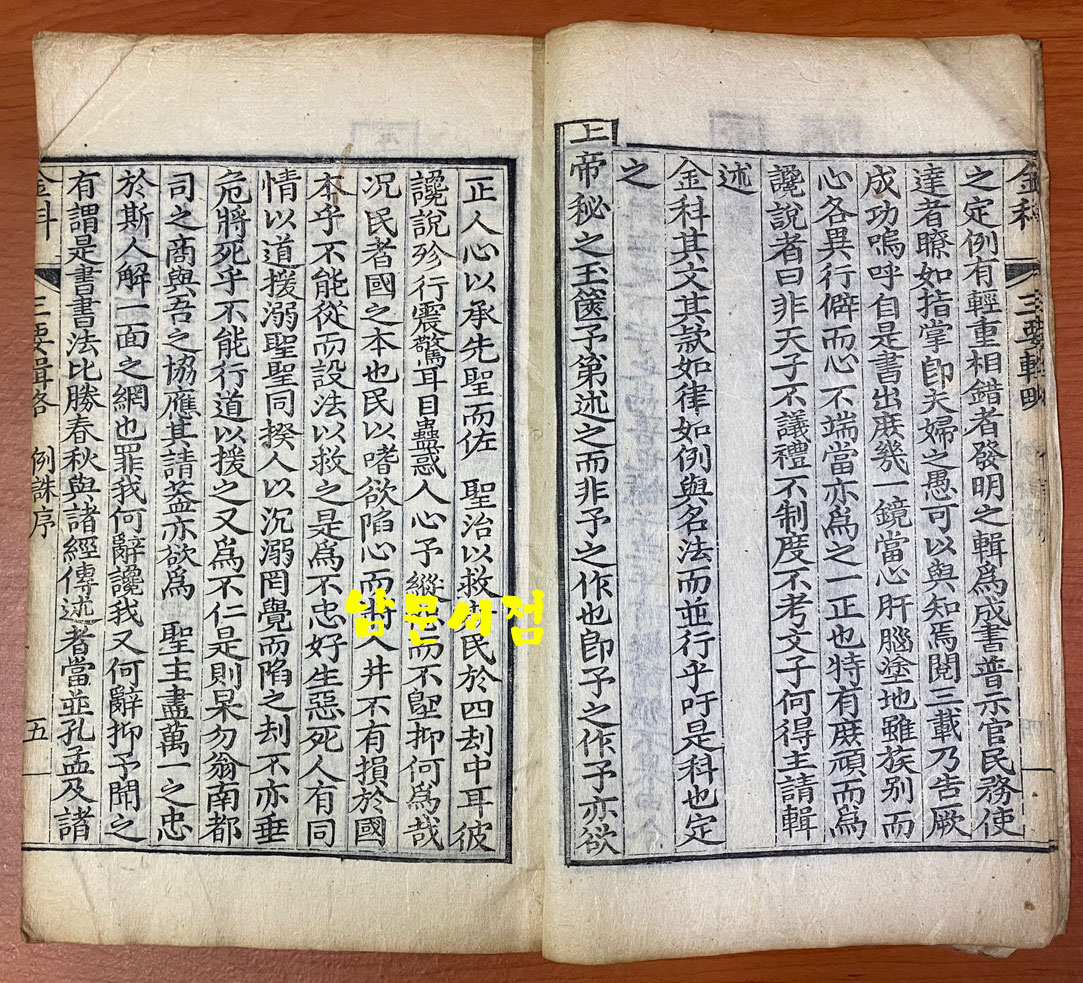 金科
三要輯略
之定例有輕重相錯者發明之輯爲成書普示官民務使
達者瞭如指掌卽夫婦之愚可以與知焉閱三載乃告厥
成功嗚呼自是書出庶幾一鏡當心肝腦塗地雖族别而
心各異行僻而心不端當亦爲之一正也特有庶頑而爲
讒說者曰非天子不議禮不制度不考文子何得主請輯
述
金科其文其欵如律如例與名法而並行乎吁是科也定
之
上帝秘之玉篋予第述之而非予之作也卽予之作予亦欲
正人心以承先聖而佐 聖治以救 民於四刦中耳彼
讒說殄行震驚耳目蠱惑人心予 而不 抑何爲哉
况民者國之本也民以嗜欲陷心而 入井不有損於國
本乎不能從而設法以救之是爲不忠好生惡死人有同
情以道援溺聖聖同揆人以沉溺罔覺而陷之刦不亦垂
危將死乎不能行道以援之又爲不仁是則杲勿翁南都
司之啇與吾之協應其請葢亦欲爲 聖主盡萬一之忠
於斯人解一面之網也罪我何辭讒我又何辭抑予聞之
有謂是書書法比勝春秋與諸經傳述者當並孔孟及諸
金科
三要輯畧 例誅序
五
남문서점